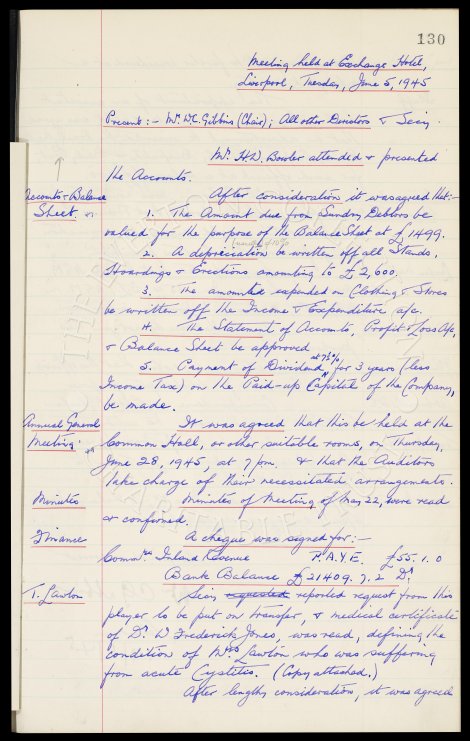 130
Meeting held at Exchange Hotel,
Liverpool, Tuesday, June 5, 1945
Present:- Mr. W.C. Gibbins (Chair); All other Directors & Secy.
Mr. H.D. Bowler attended & presented
the Accounts.
Accounts & Balance Sheet.
After consideration it was agreed that:-
1. The Amount due from Sundry Debtors be
valued for the purpose of the Balance Sheet at £1499.
2. A depreciation be written off all Stands,
Hoardings & Erections amounting to £2,600.
3. The amounted expended on Clothing & Stores
be written off the Income & Expenditure a/c.
4. The Statement of Accounts, Profit & Loss A/c,
& Balance Sheet be approved
5. Payment of Dividend at 7½%, for 3 years (less
Income Tax) on the Paid-up Capital of the Company,
be made.
Annual General Meeting.
It was agreed that this be held at the
Common Hall, or other suitable rooms, on Thursday,
June 28, 1945, at 7 pm. & that the Auditors
take charge of their necessitated arrangements.
Minutes
Minutes of Meeting of May 22, were read
& confirmed.
Finance
A cheque was signed for:-
Commrs Inland Revenue P.A.Y.E. £55.1.0
Bank Balance £21409.7.2 Dr
T. Lawton
Secy. reported request from this
player to be put on transfer, & medical certificate
of Dr. W Frederick Jones, was read, defining the
condition of Mrs Lawton who was suffering
from acute Cystitis. (Copy attached.)
After lengthy consideration, it was agreed